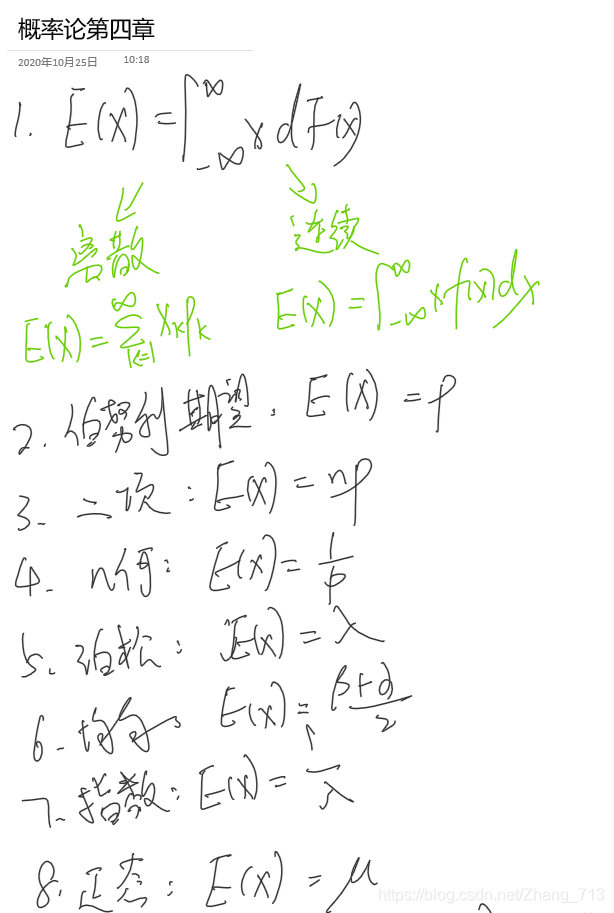 概率论第四章
2020年10月25日 10:18
1. E(X) = ∫_{-∞}^{∞} x dF(x)
离散 连续
E(X) = ∑_{k=1}^{∞} x_k p_k
E(X) = ∫_{-∞}^{∞} x f(x) dx
2. 伯努利期望: E(X) = p
3. 二项: E(X) = np
4. n何: E(X) = 1/p
5. 泊松: E(X) = λ
6. 均匀: E(X) = (β+α)/2
7. 指数: E(X) = 1/λ
8. 正态: E(X) = μ
https://blog.csdn.net/Zhang_713